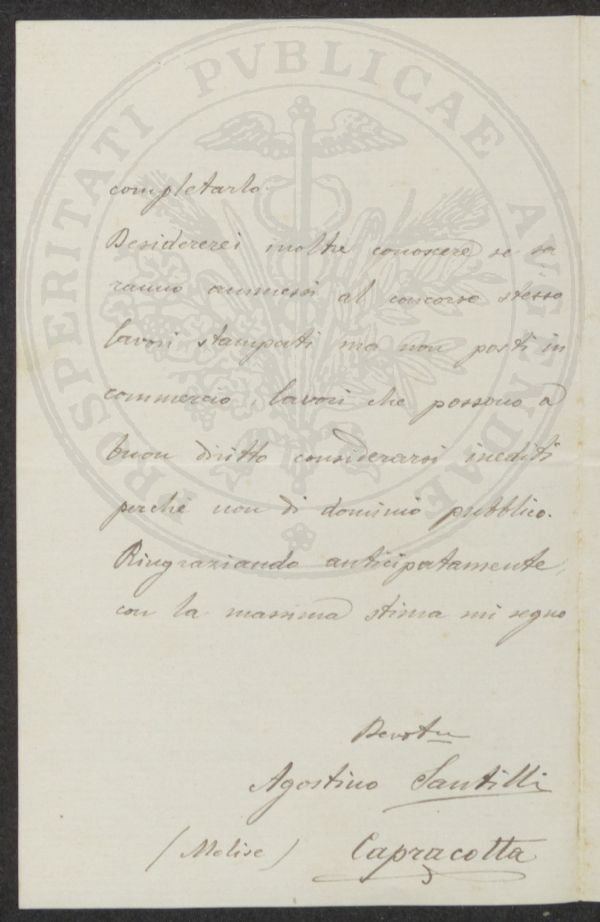 PROSPERITATI PVBLICAE AVGENDAE
completarlo.
Desidererei inoltre conoscere se sa
ranno ammessi al concorso stesso
lavori stampati ma non posti in
commercio, lavori che possono a
buon diritto considerarsi inediti
perché non di dominio pubblico.
Ringraziando anticipatamente,
con la massima stima mi segno
Devotmo
Agostino Santilli
(Molise) Capracotta